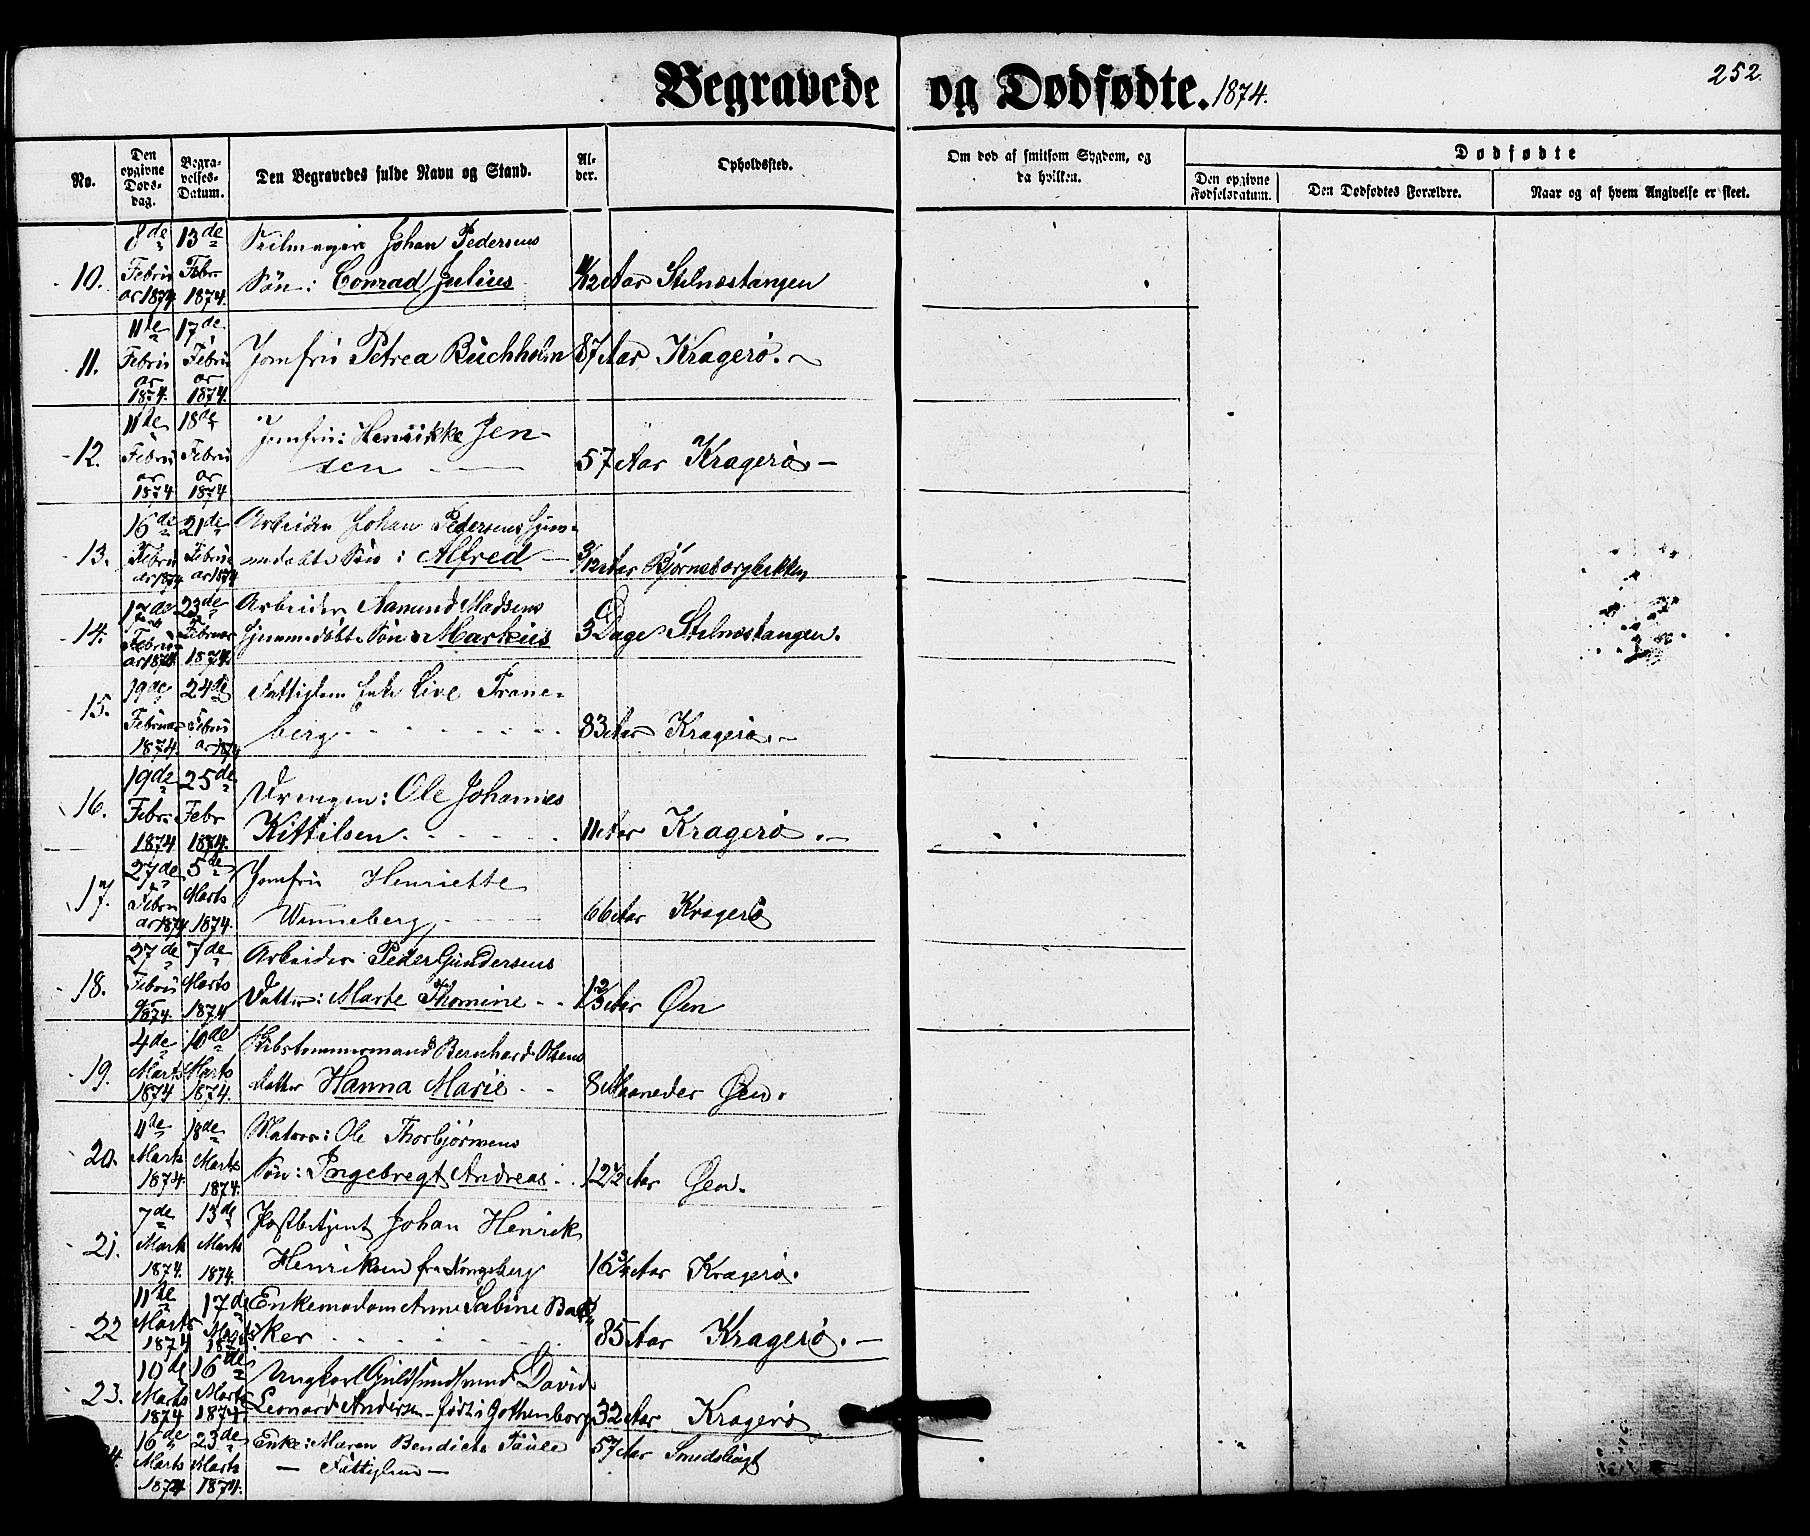 Begravede og Dødfødte. 1874.
252.
No.
Den opgivne Døds-dag.
Begra-velses-Datum.
Den Begravedes fulde Navn og Stand.
Al-der.
Opholdssted.
Om død af smitsom Sygdom, og da hvilken.
Dødfødte
Den opgivne Fødselsdatum.
Den Dødfødtes Forældre.
Naar og af hvem Angivelse er skeet.
10. 8de Februar 1874. 13de Febr. 1874. Seilmager Johan Pedersens
Søn: Conrad Julius 11/12 Aar Stilnæstangen
11. 11te Februar 1874. 17de Februar 1874. Jomfru Petrea Buchholm 87 Aar Kragerø.
12. 11te Februar 1874 18de Februar 1874 Jomfru: Henrikke Jen-
sen 57 Aar Kragerø
13. 16de Februar 1874 21de Februar 1874 Arbeider Johan Pedersens hjem-
medøbte Søn: Alfred 3/12 Aar Bjørnsborgbakken
14. 17de Februar 1874 23de Februar 1874. Arbeider Aamund Madsens
hjemmedøbte Søn Markus 3 Dage Stilnæstangen.
15. 19de Februar 1874. 24de Februar 1874 Fattiglem Enke Live Trane-
berg 83 Aar Kragerø.
16. 19de Febr. 1874 25de Febr 1874. Drengen: Ole Johannes
Kittilsen. 11 Aar Kragerø.
17. 27de Februar 1874. 5de Marts 1874. Jomfru Henriette
Winneberg 66 Aar Kragerø
18. 27de Februar 1874. 7de Marts 1874 Arbeider Peder Gundersens
Datter: Marte Thomine 1 2/3 Aar Øen
19. 4de Marts 1874 10de Marts 1874. Skibstømmermand Bernhard Olsens
datter Hanna Marie 8 Maaneder Øen.
20. 11de Marts 1874. 18de Marts 1874. Matros: Ole Thorbjørnsens
Søn: Ingebregt Andreas 12 1/2 Aar Øen.
21. 7de Marts 1874. 13de Marts 1874. Postbetjent Johan Henrik
Henriksen fra Kongsberg 16 3/4 Aar Kragerø.
22 11te Marts 1874 17de Marts 1874. Enkemadam Anne Sabine Bak
ker 85 Aar Kragerø.
23. 10de Marts 1874 16de Marts 1874. Ungkarl Guldsmedsvend David
Leonard Andersen født i Gothenborg 32 Aar Kragerø
4. 16de Marts 1874 23de Marts 1874. Enke: Maren Bendicte 57 Aar Smedsbugt
Fattiglem